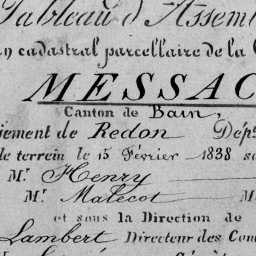 Tableau d'Assemb
n cadastral parcellaire de la
MESSAC
Canton de Bain,
iement de Redon Dép
le terrein le 15 Février 1838 so
Mr. Henry
Mr. Malecot M
et sous la Direction de
Lambert Directeur des Con